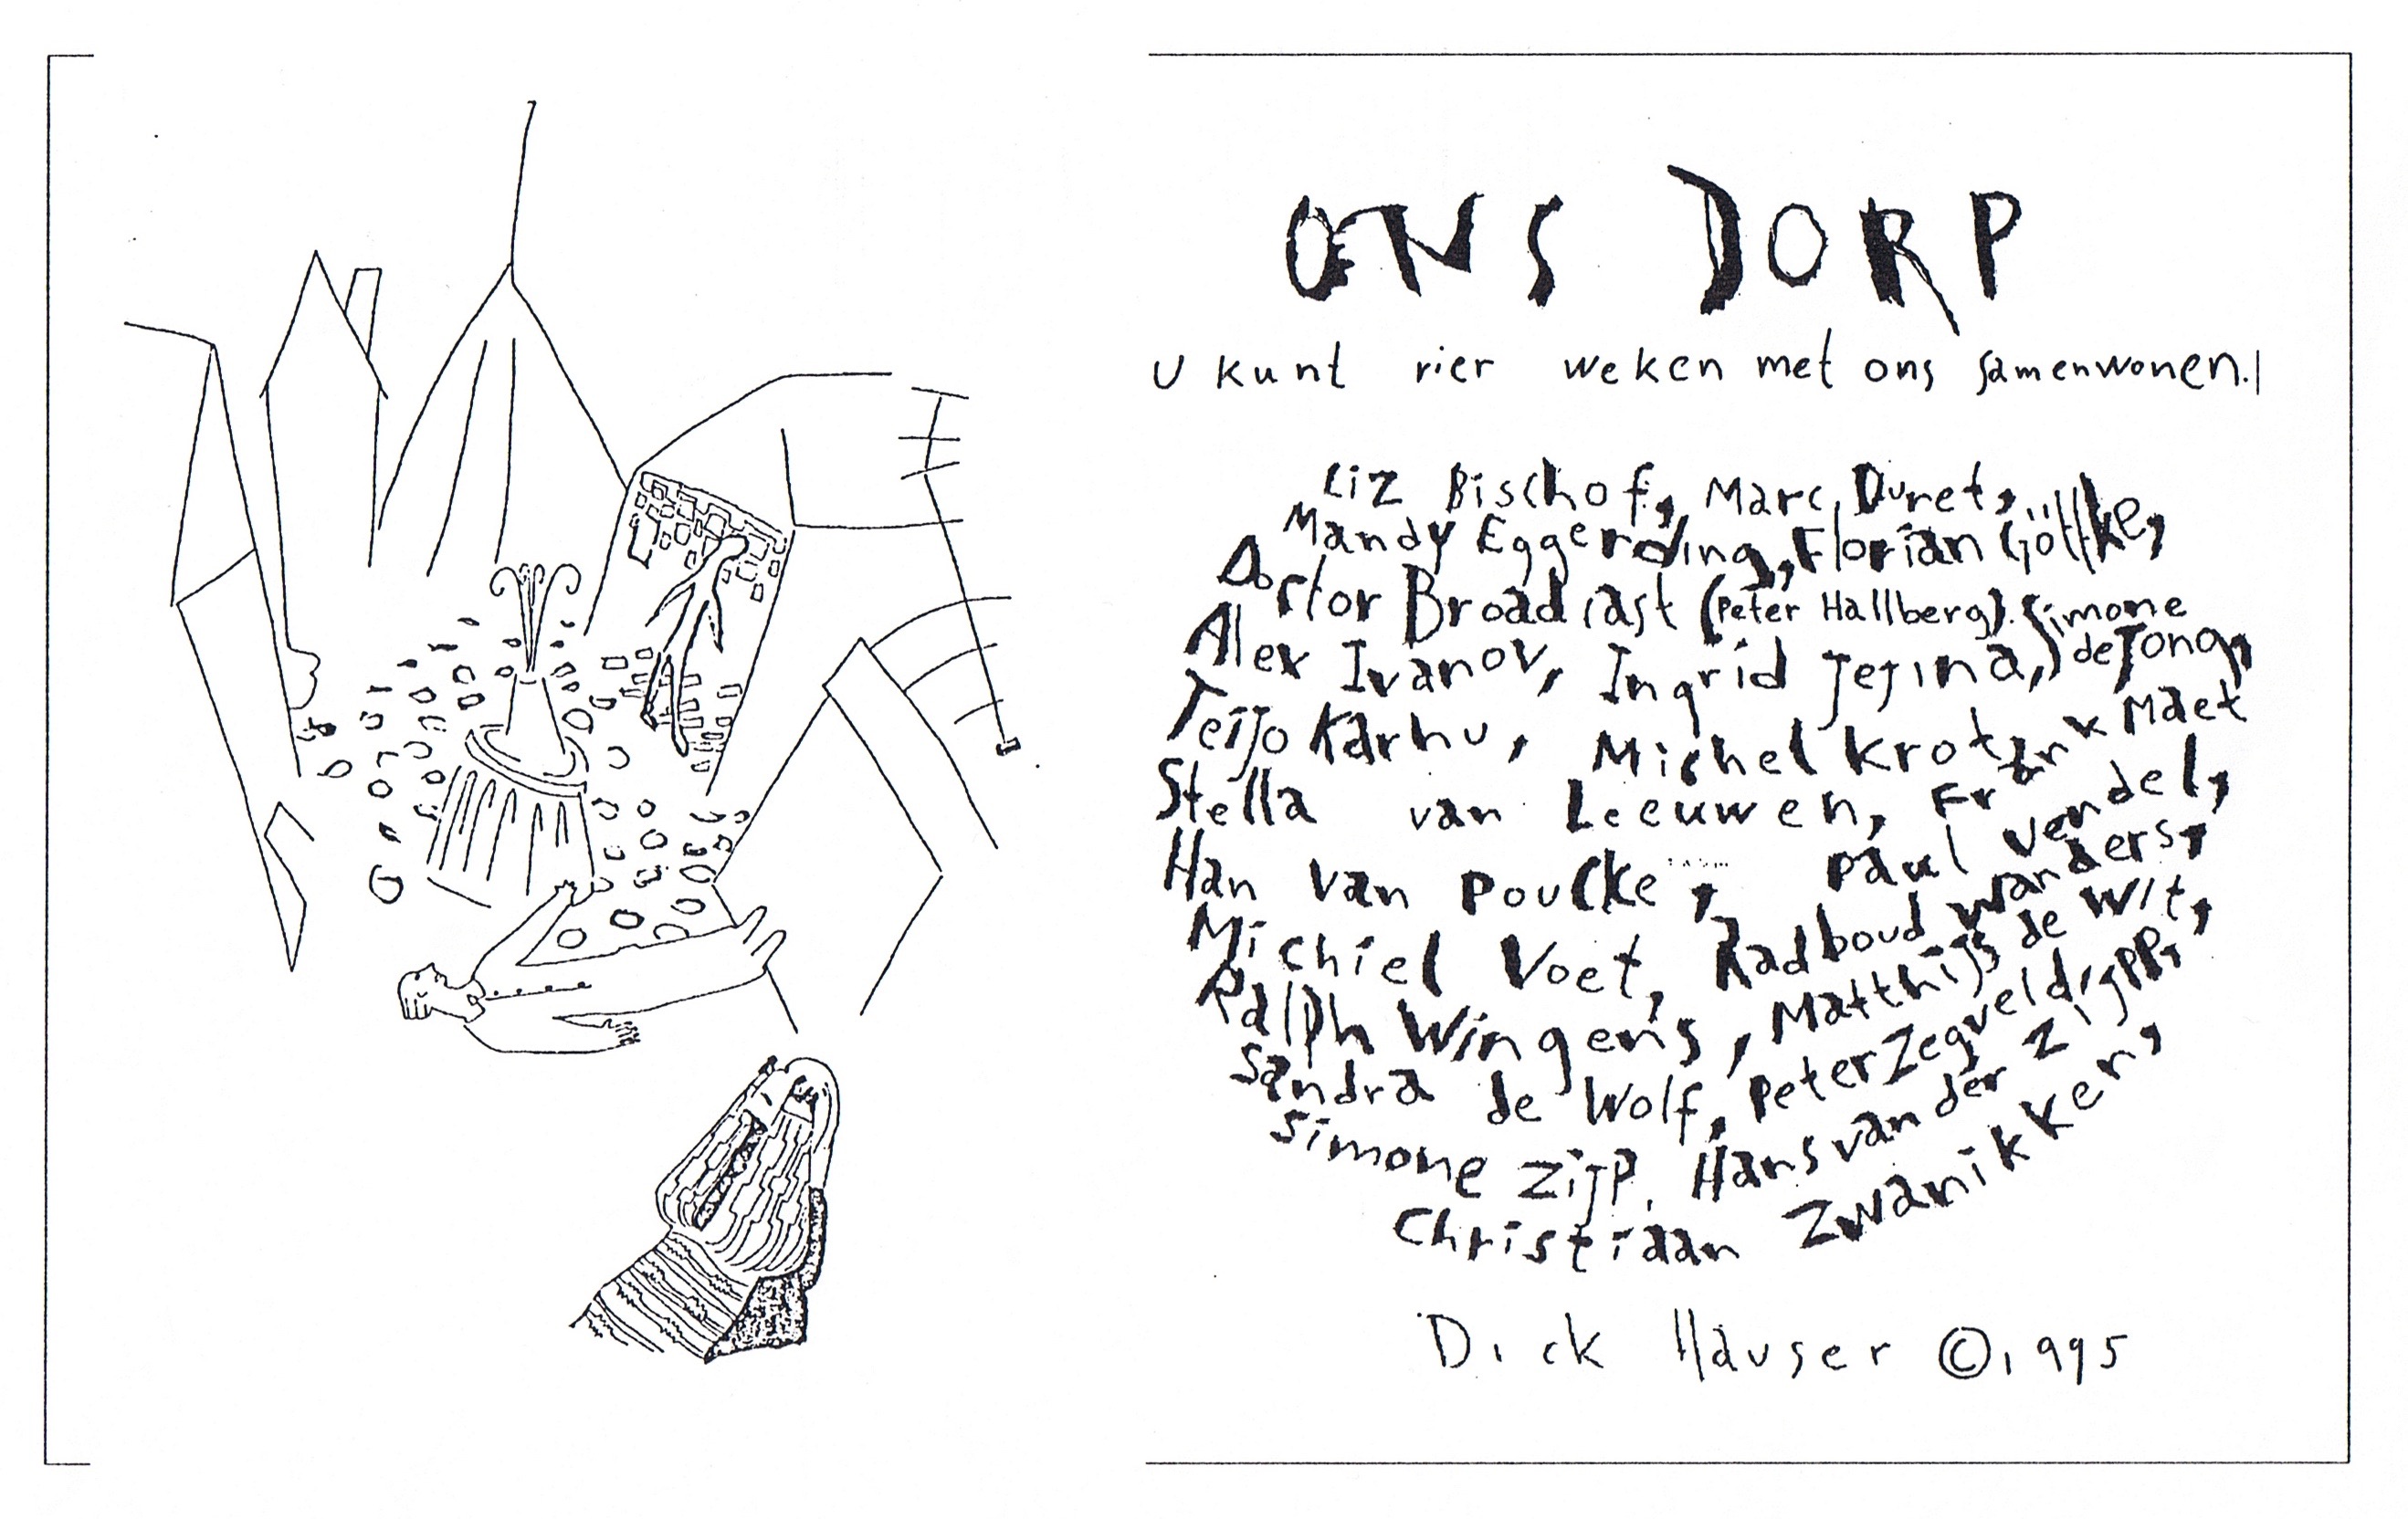 ONS DORP
U kunt vier weken met ons samenwonen.
Liz Bischof, Marc Duret,
Mandy Eggerding, Florian Göttke,
Doctor Broadcast (Peter Hallberg). Simone
Alex Ivanov, Ingrid Jejina, de Jong,
Teijo Karhu, Michel Krot, Frank Maet
Stella van Leeuwen, Paul Vendel,
Han van Poucke, Radboud Wanders,
Michiel Voet, Matthijs de Wit,
Ralph Wingens, Peter Zegveld,
Sandra de Wolf, Hans van der Zijpp,
Simone Zijp, Christiaan Zwanikken,
Dick Häuser © 1995